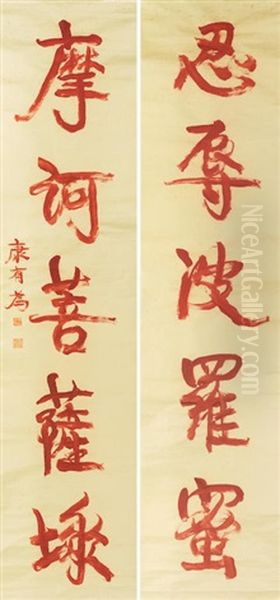 忍辱波羅蜜
摩訶菩薩
康有為
www.NiceArtGallery.com